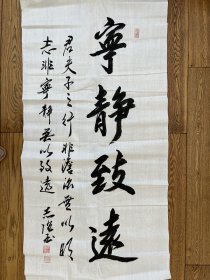 寧静致遠
君夫子之行非澹泊無以明
志非寧静無以致遠